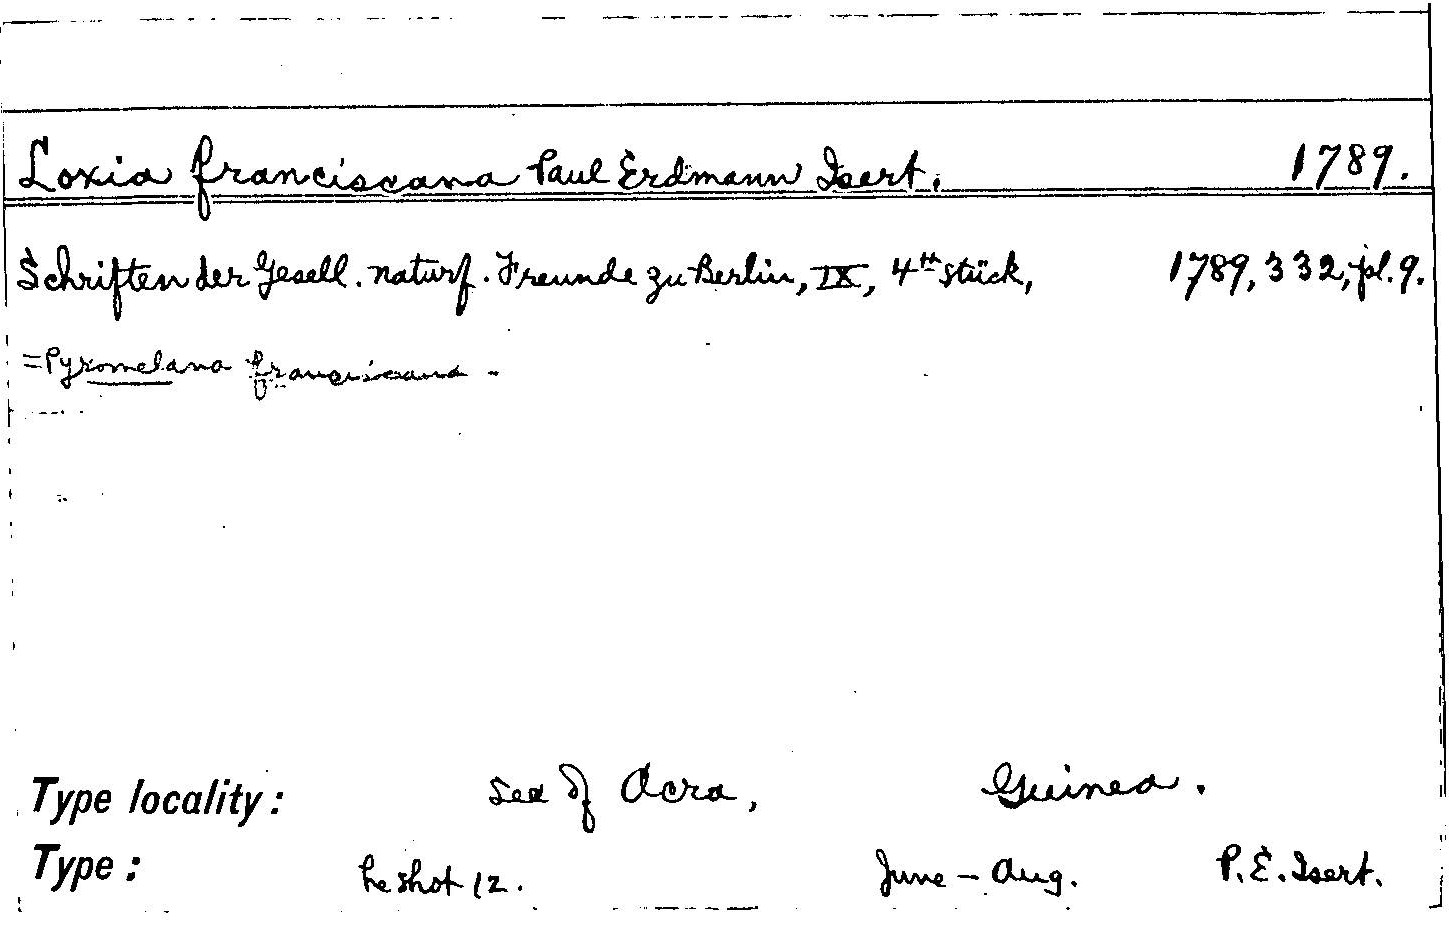 Loxia franciscana Paul Erdmann Isert. 1789.
Schriften der Gesell. naturf. Freunde zu Berlin, IX, 4th stück, 1789, 332, pl. 9.
=Pyromelana franciscana.
Type locality: Sea of Acra, Guinea.
Type: he shot 12. June - Aug. P. E. Isert.